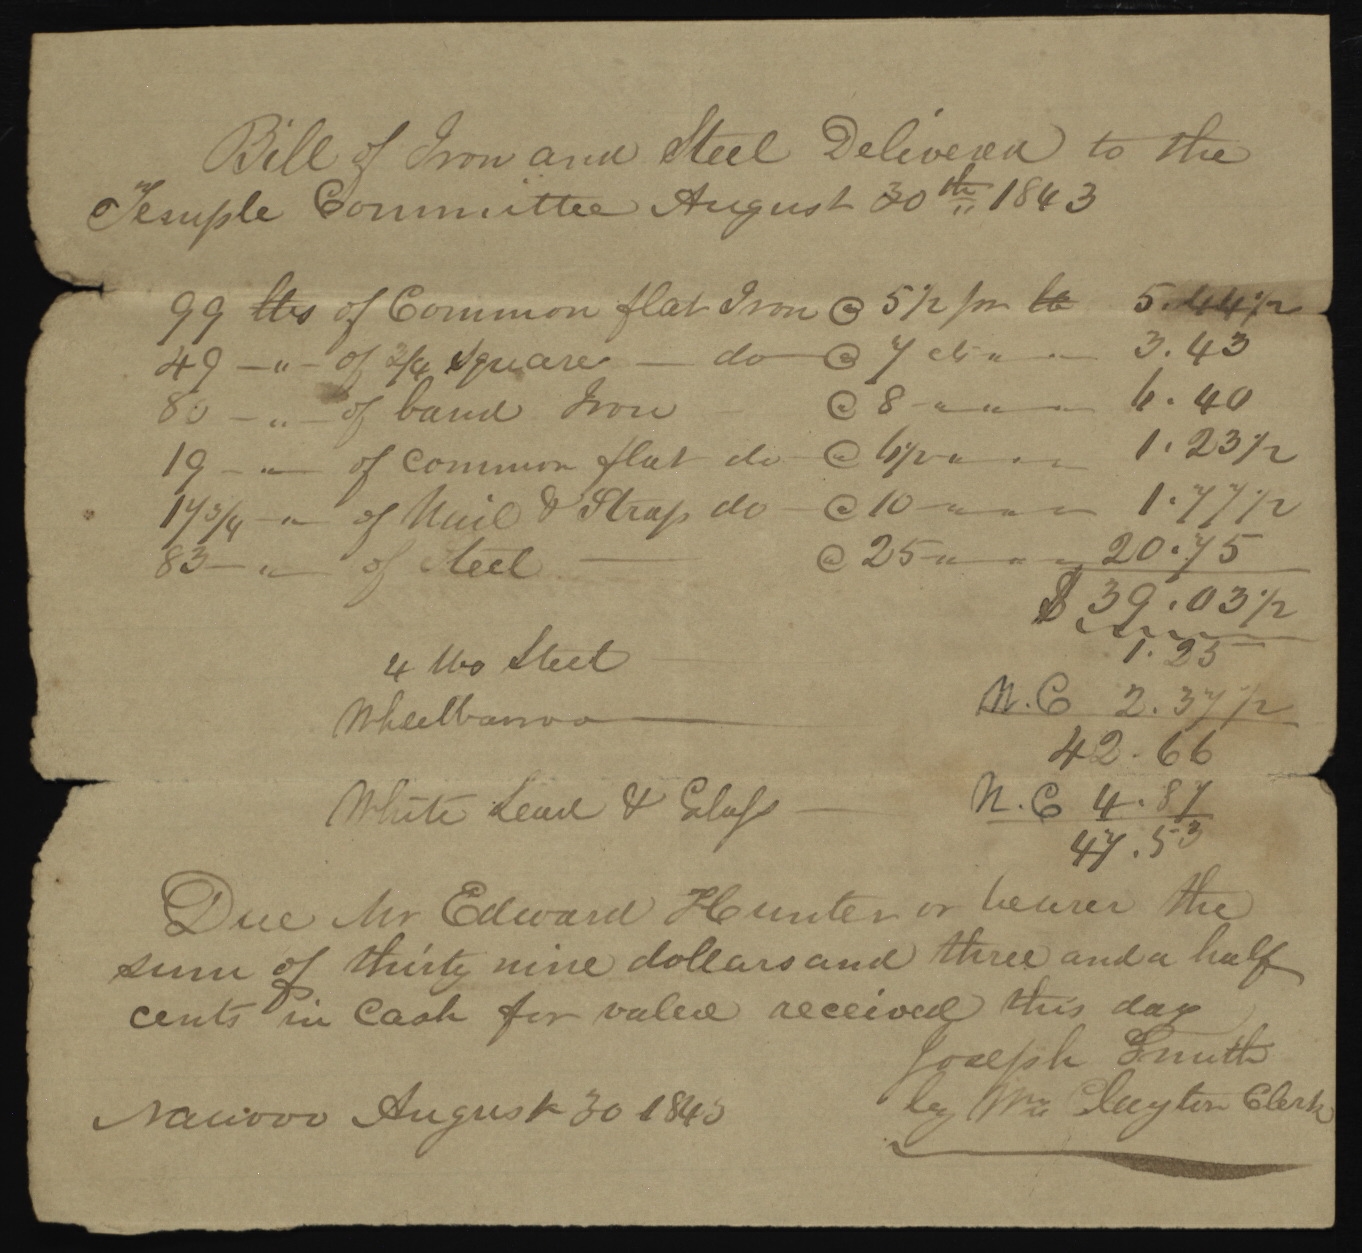 Bill of Iron and Steel Delivered to the
Temple Committee August 30th 1843
99 lbs of Common flat Iron @ 5 1/2 pr lb 5.44 1/2
49 — " — of 3/4 square — do — @ 7 cts " " — 3.43
80 — " — of band Iron — @ 8 — " " " — 6.40
19 — " — of common flat do — @ 6 1/2 " " " — 1.23 1/2
17 3/4 — " — of Nail & Strap do — @ 10 — " " " — 1.77 1/2
83 — " — of Steel — @ 25 — " " " 20.75
$ 39.03 1/2
4 lbs Steel — 1.25
Wheelbarrow — N.C 2.37 1/2
42.66
White Lead & Glass — N.C 4.87
47.53
Due Mr Edward Hunter or bearer the
sum of thirty nine dollars and three and a half
cents in Cash for value received this day
Joseph Smith
Nauvoo August 30 1843 by Wm Clayton Clerk